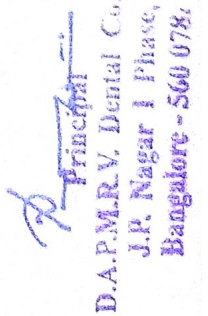 Principal
D.A.P.M.R.V. Dental Co
J.P. Nagar I Phase,
Bangalore - 560 078.